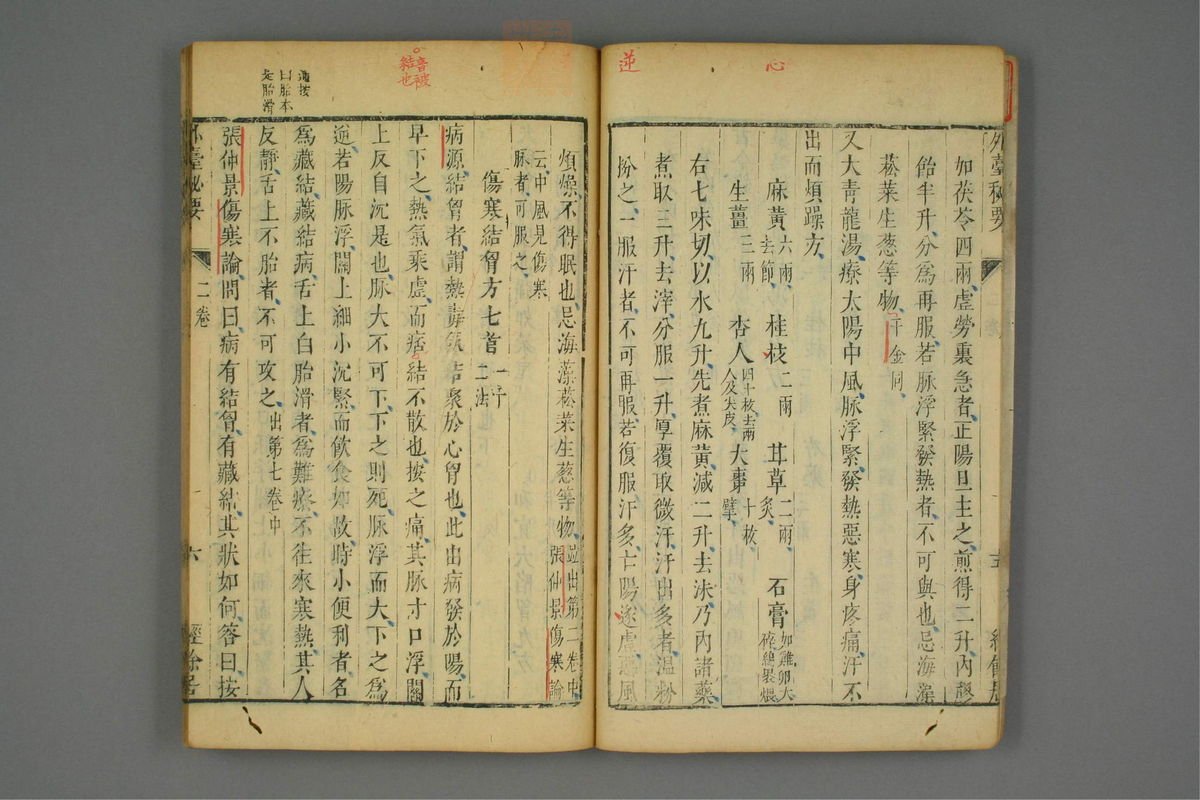 逆
心
外臺秘要
如茯苓四兩虛勞裏急者正陽旦主之煎得二升內膠
飴半升分爲再服若脉浮緊發熱者不可與也忌海藻
菘菜生葱等物千金同
又大青龍湯療太陽中風脉浮緊發熱惡寒身疼痛汗不
出而煩躁方
麻黃六兩去節 桂枝二兩 甘草二兩炙 石膏如雞卵大碎綿裹煨
生薑三兩 杏人四十枚去兩人及尖皮 大棗十枚擘
右七味切以水九升先煮麻黃減二升去沫乃內諸藥
煮取三升去滓分服一升厚覆取微汗汗出多者溫粉
扮之一服汗者不可再服若復服汗多亡陽遂虛惡風
音被
結也
煩燥不得眠也忌海藻菘菜生葱等物並出第二卷中張仲景傷寒論
云中風見傷寒脉者可服之
傷寒結胷方七首一十二法
病源結胷者謂熱毒氣結聚於心胷也此由病發於陽而
早下之熱氣乘虛而痞結不散也按之痛其脉寸口浮關
上反自沉是也脉大不可下下之則死脉浮而大下之爲
逆若陽脉浮關上細小沉緊而飲食如故時小便利者名
爲藏結藏結病舌上白胎滑者爲難療不往來寒熱其人
反靜舌上不胎者不可攻之出第七卷中
張仲景傷寒論問曰病有結胷有藏結其狀如何答曰按
外臺秘要 二卷 六 經餘居